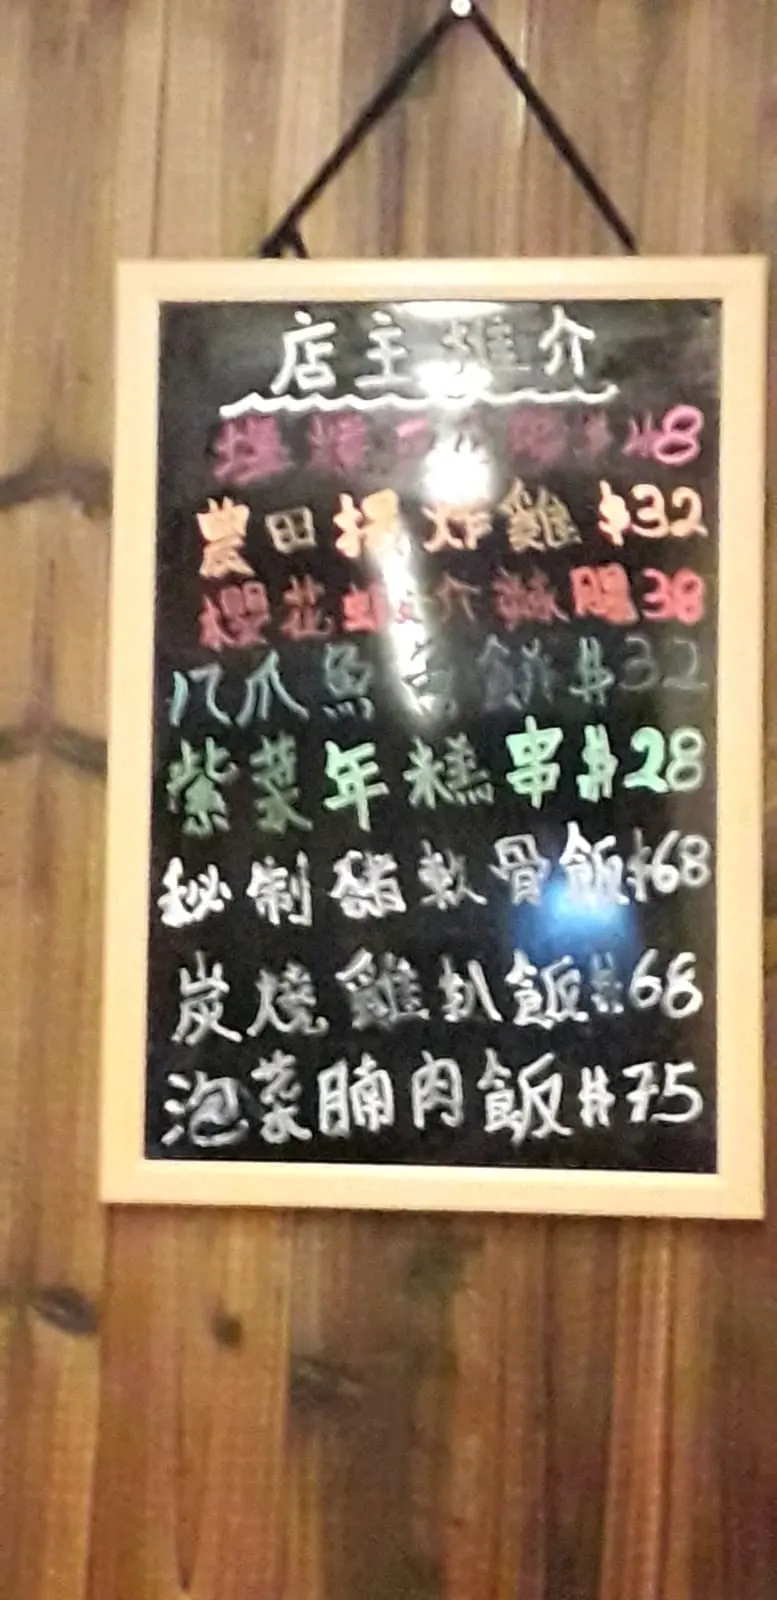 店主推介
$8
農田揚炸雞 $32
櫻花 介辣 38
八爪魚 餅 $32
紫菜年糕串 $28
秘制豬軟骨飯 $68
炭燒雞扒飯 $68
泡菜腩肉飯 $75